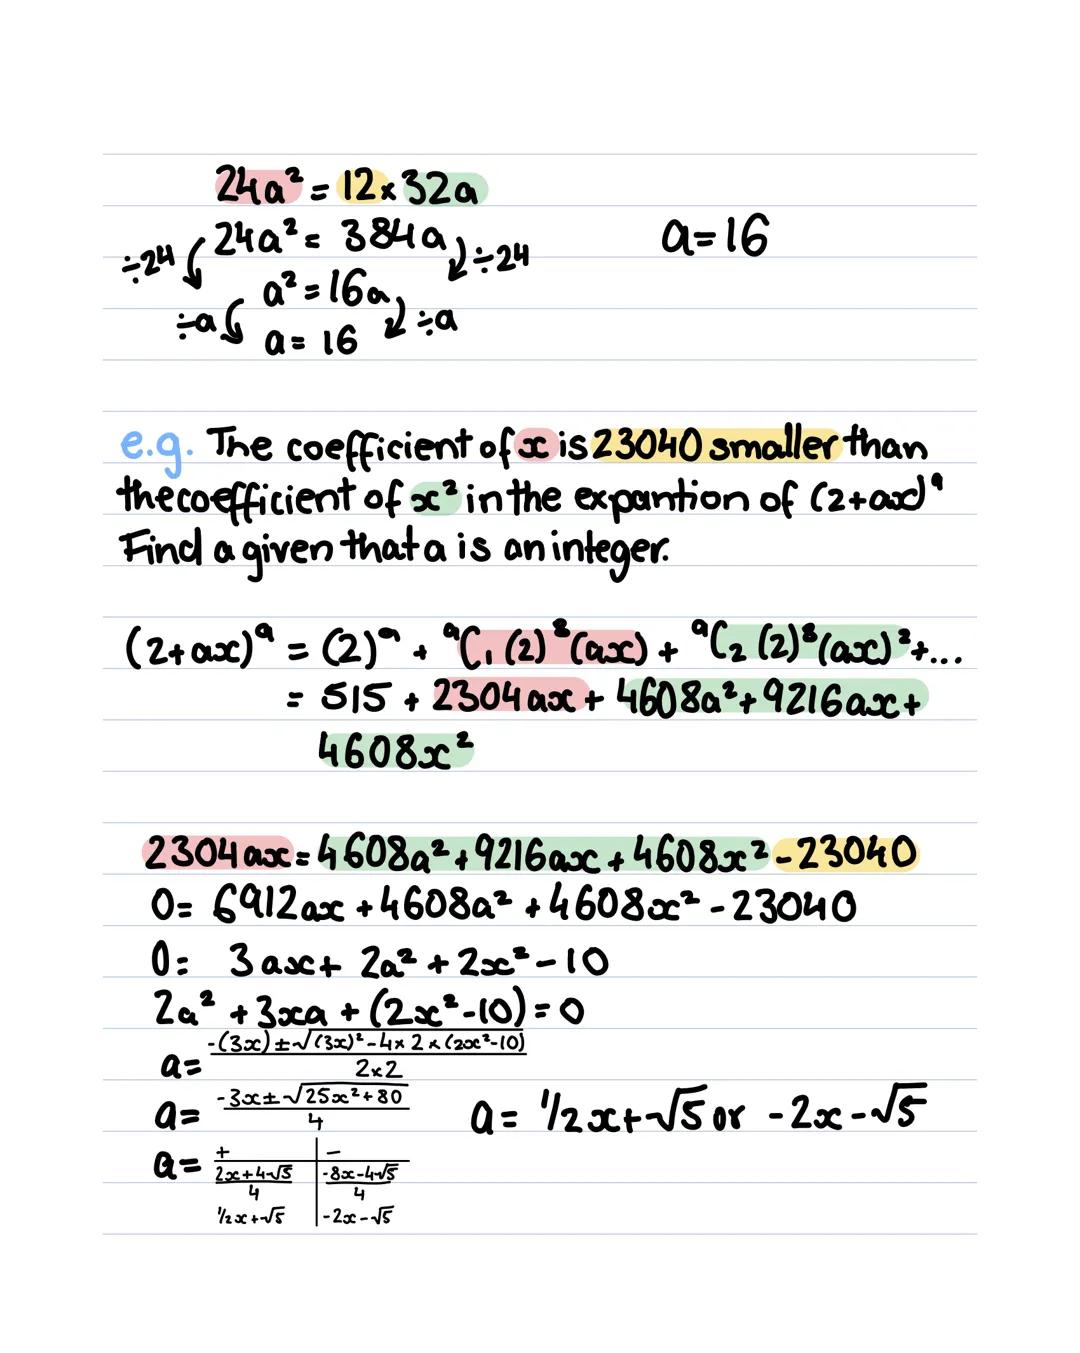 24a² = 12 × 32a
÷24 24a² = 384a ÷24 a=16
a² = 16a
÷a a = 16 ÷a
e.g. The coefficient of x is 23040 smaller than
the coefficient of x² in the expantion of (2+ax)⁹
Find a given that a is an integer.
(2+ax)⁹ = (2)⁹ + ⁹C₁(2)⁸(ax) + ⁹C₂(2)⁸(ax)² + ...
= 515 + 2304ax + 4608a² + 9216ax +
4608x²
2304ax = 4608a² + 9216ax + 4608x² - 23040
0= 6912ax + 4608a² + 4608x² - 23040
0= 3ax + 2a² + 2x² - 10
2a² + 3xa + (2x²-10) = 0
a= (-(3x) ± √((3x)² - 4×2×(2x²-10))) / 2×2
a= (-3x ± √(25x²+80)) / 4 a= 1/2x+√5 or -2x-√5
a= + | -
(2x+4√5)/4 | (-8x-4√5)/4
1/2x+√5 | -2x-√5